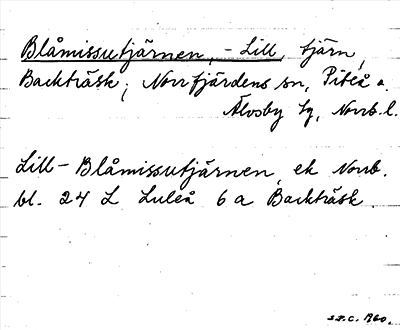 Blåmissutjärnen, - Lill, tjärn,
Backträsk, Norrfjärdens sn, Piteå o.
Älvsby tg, Norrb. l.
Lill-Blåmissutjärnen ek Norrb.
bl. 24 L Luleå 6 a Backträsk.
1960.